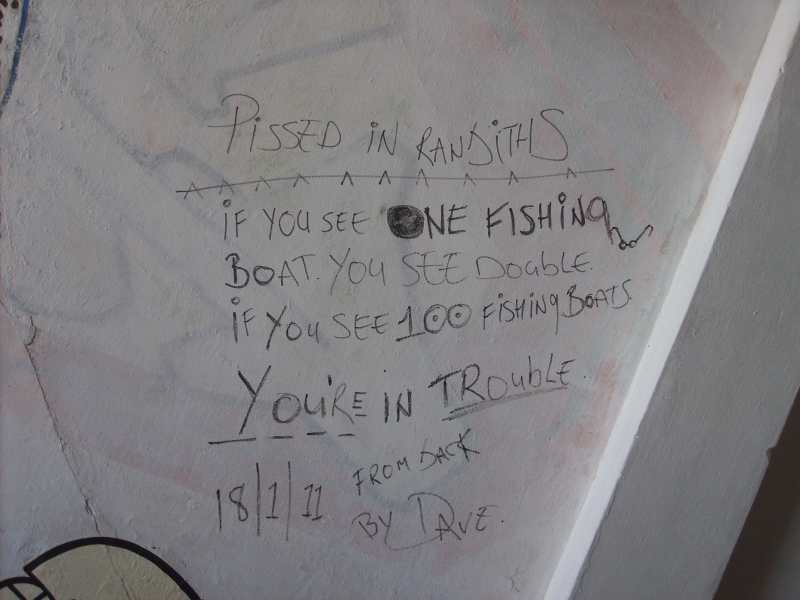 PISSED IN RANDITHS
IF YOU SEE ONE FISHING
BOAT. YOU SEE DOUBLE.
IF YOU SEE 100 FISHING BOATS.
YOU'RE IN TROUBLE.
18/1/11 FROM JACK
BY DAVE.